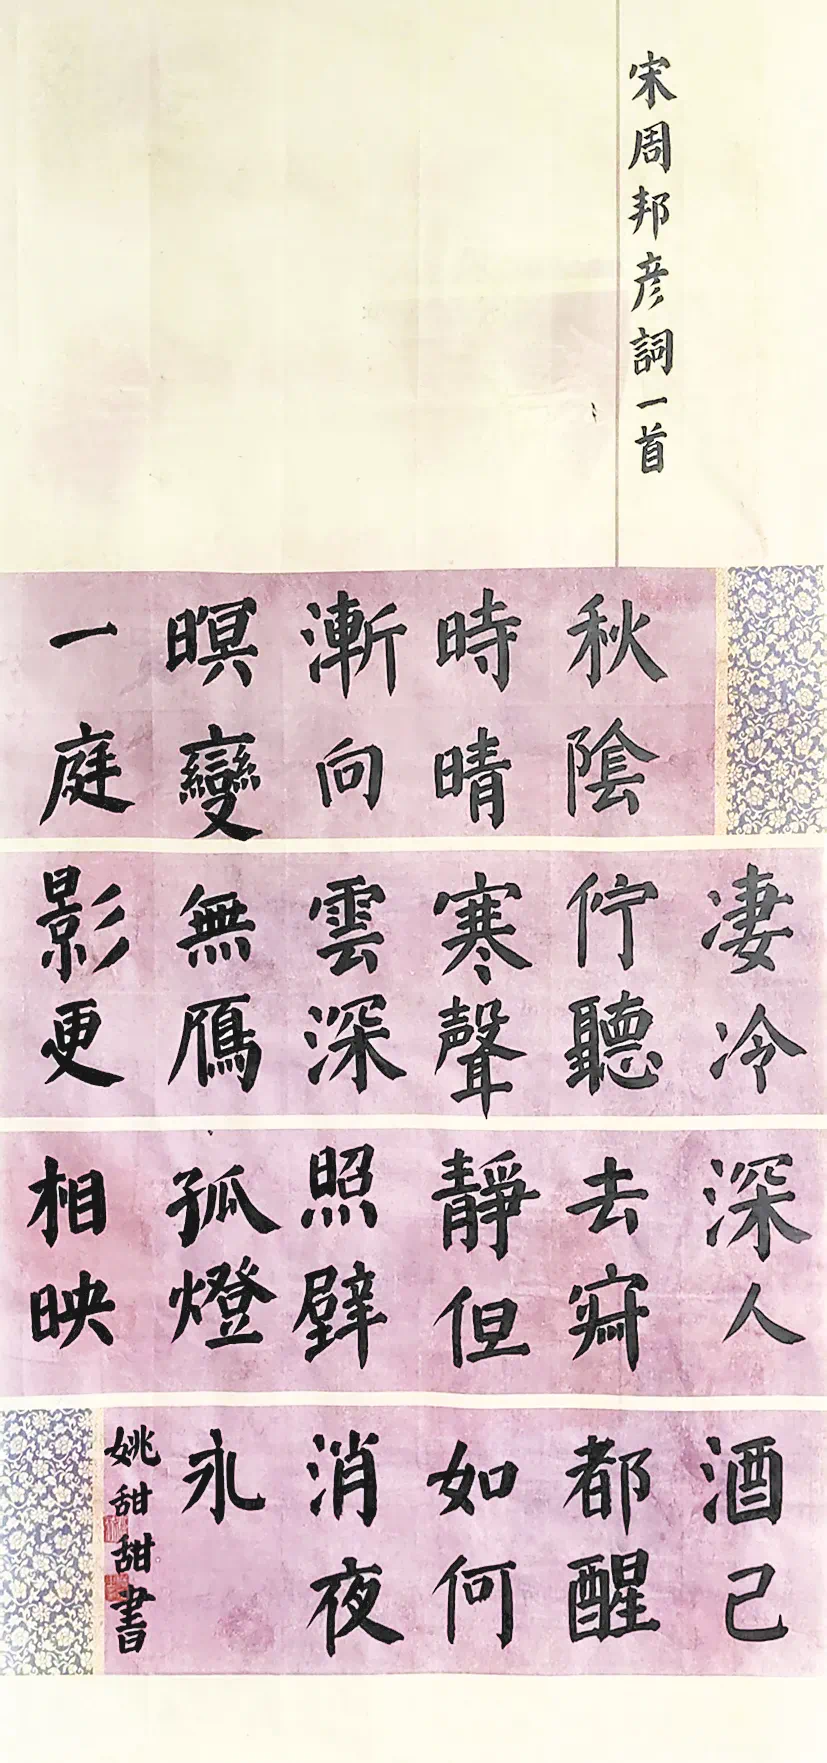 宋周邦彦詞一首
秋陰
時晴
漸向
暝變
一庭
凄冷
佇聽
寒聲
雲深
無鴈
影更
深人
去寂
靜但
照壁
孤燈
相映
酒己
都醒
如何
消夜
永
姚甜甜書